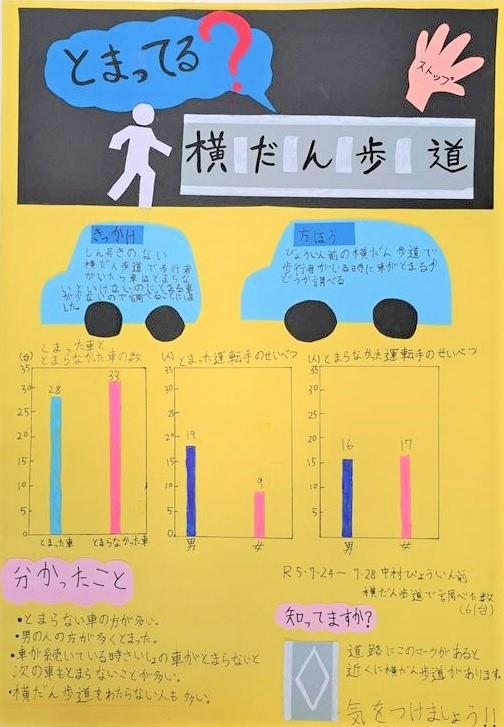 とまってる?
ストップ
横だん歩道
きっかけ
しん号きのない
横だん歩道で歩行者
がいたら車はとまらな
いといけないのにとまる車
が少ないので調べることにしま
した。
方ほう
びょういん前の横だん歩道で
歩行者がいる時に車がとまるか
どうか調べる
(台)
とまった車と
とまらなかった車の数
35
30
25
20
15
10
5
0
28
33
とまった車
とまらなかった車
(人)とまった運転手のせいべつ
35
30
25
20
15
10
5
0
19
9
男
女
(人)とまらなかった運転手のせいべつ
35
30
25
20
15
10
5
0
16
17
男
女
R5.7.24〜7.28中村びょういん前
横だん歩道で調べた数
(61台)
分かったこと
・とまらない車の方が多い。
・男の人の方が多くとまった。
・車が続いている時さいしょの車がとまらないと
次の車もとまらないことが多い。
・横だん歩道をわたらない人も多い。
知ってますか?
道路にこのマークがあると
近くに横だん歩道があります
気をつけましょう!!